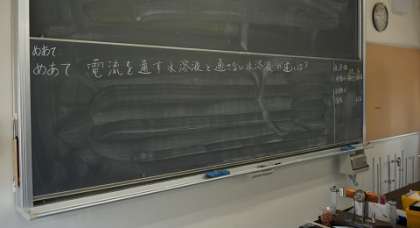 めあて
めあて 電流を通す水溶液と通さない水溶液の違いは?